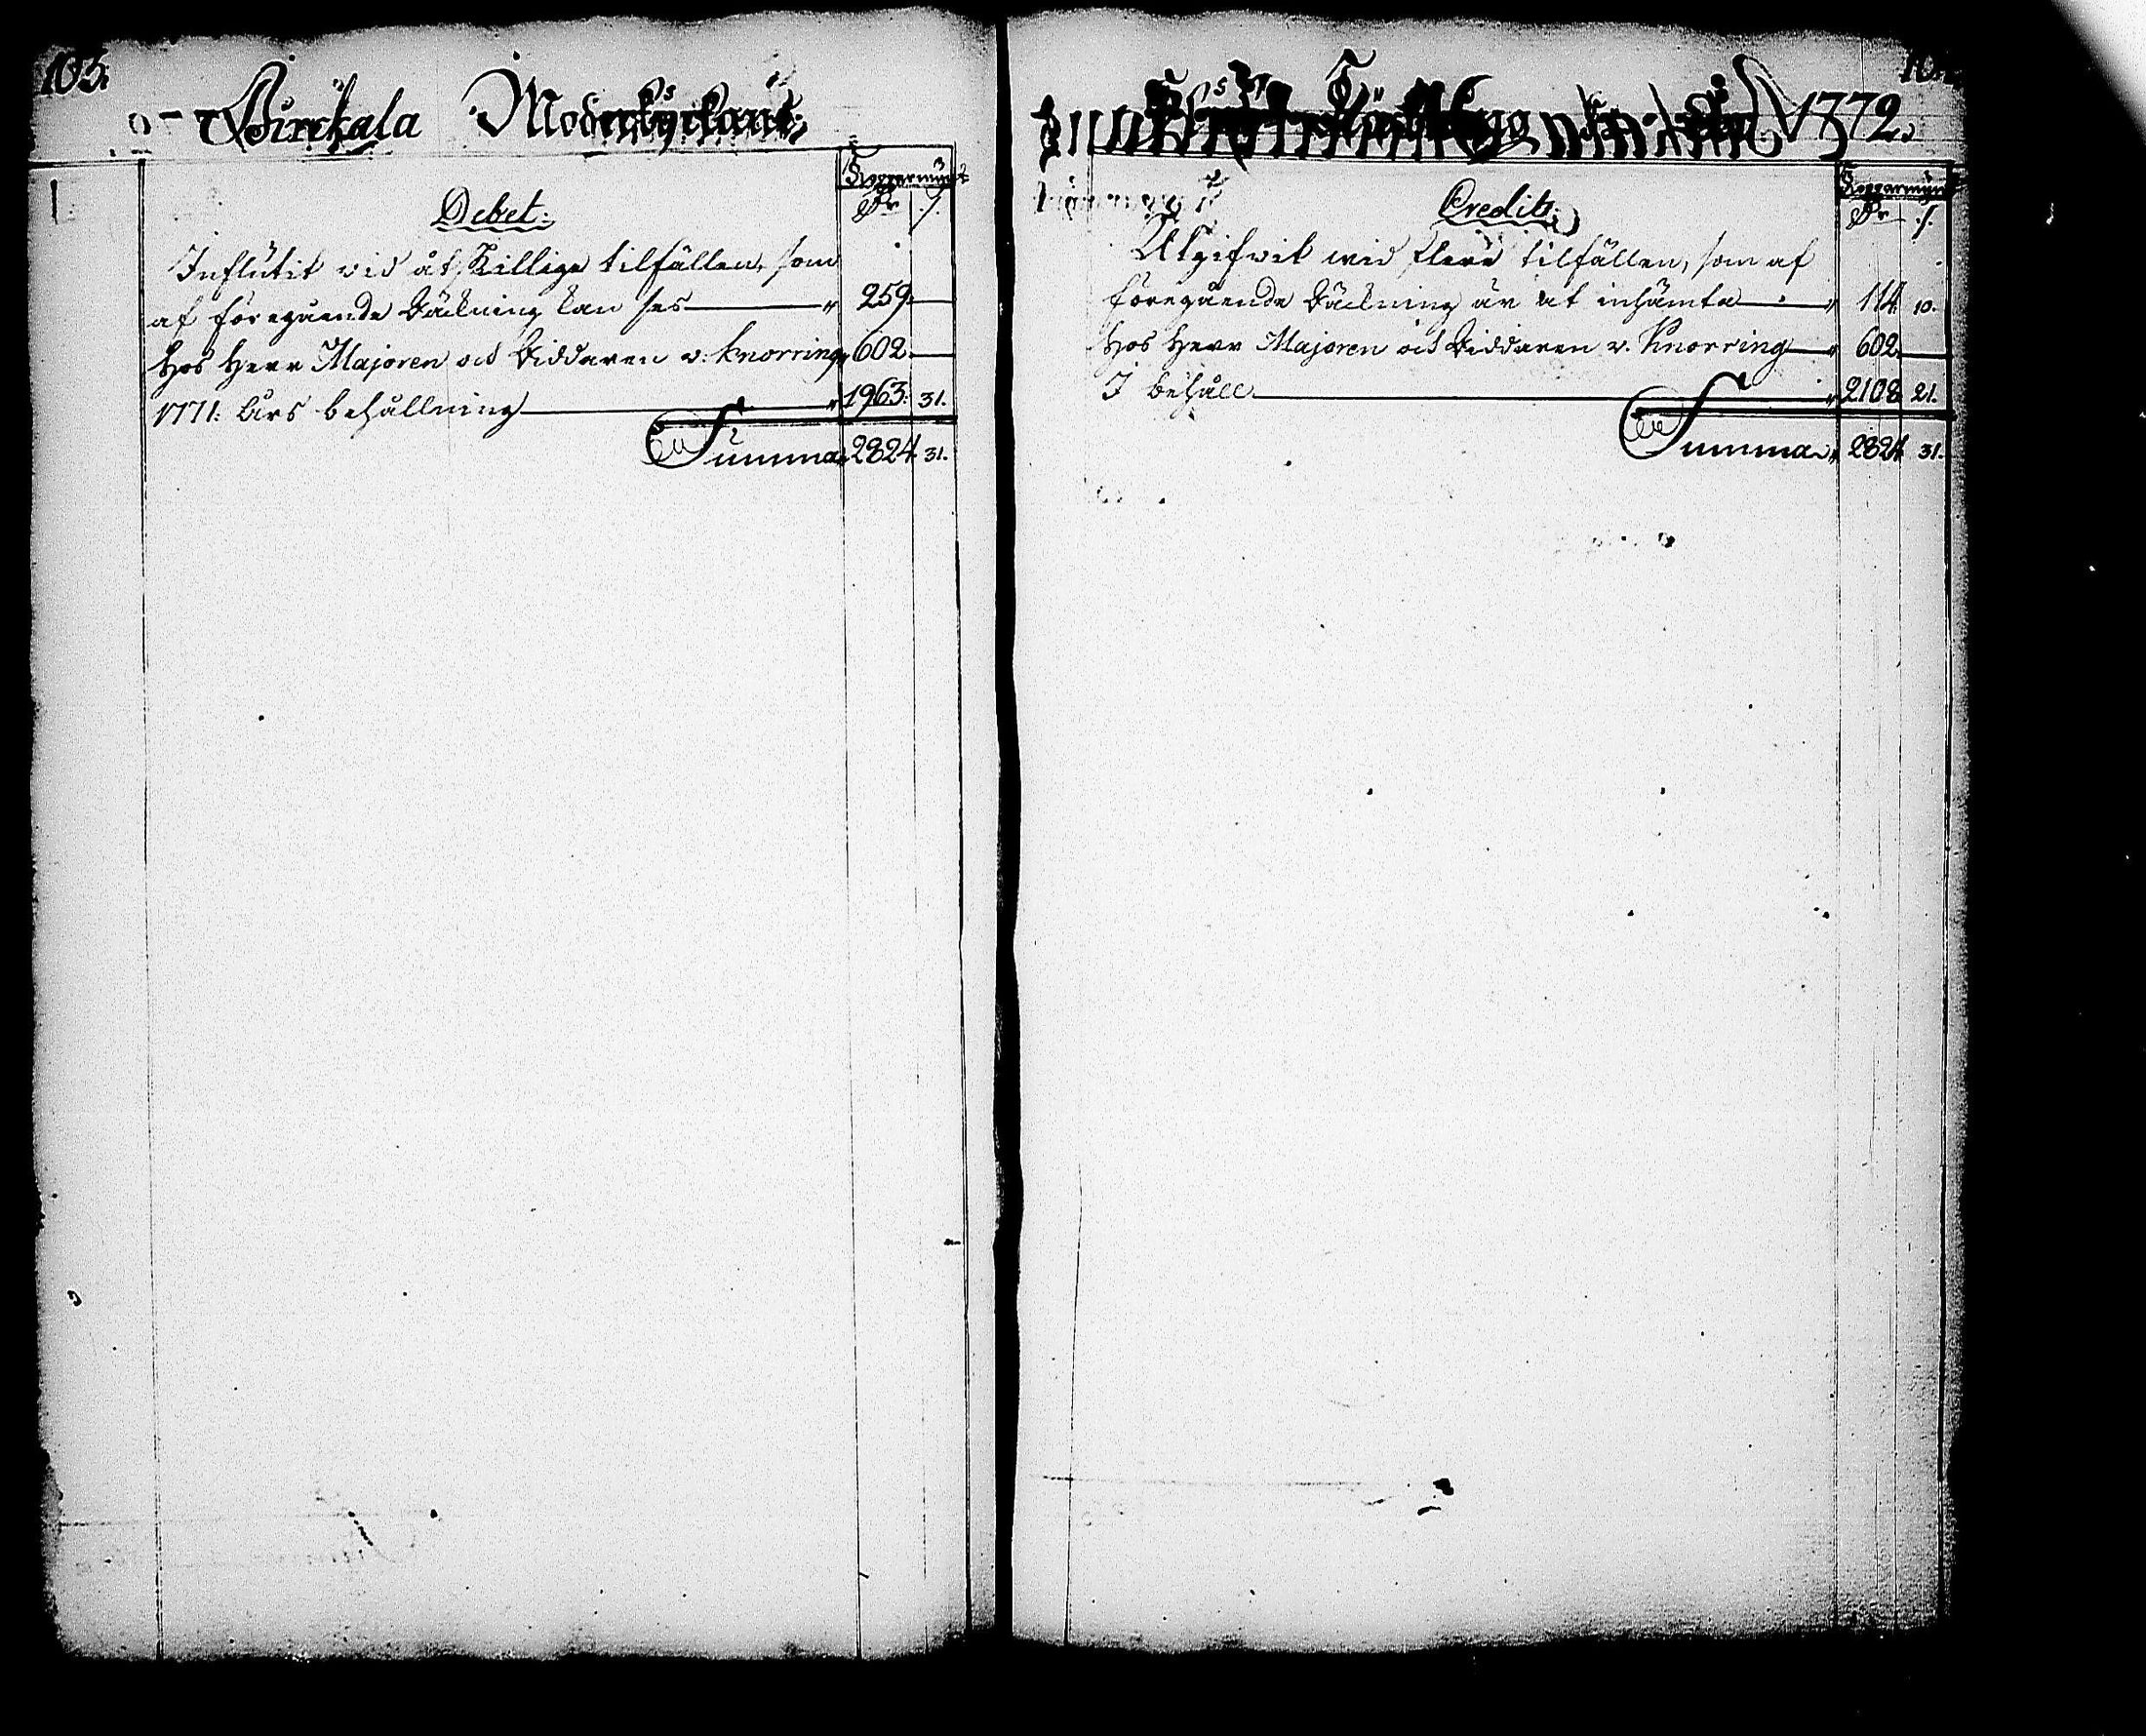 103.
Birckala Moderkyrckans
Koppar mynt
Debet.
Dr ./.
Influtit vid åtskillige tilfällen, som
af föregående Räckning kan ses 259. —
Hos Herr Majoren och Riddaren v. Knorring 602. —
1771. års behållning 1963. 31.
Summa 2824. 31.
1772.
Kopparmynt
Credit.
Dr ./.
Utgifvit wid flere tilfällen, som af
föregående Räckning är at inhämta 114. 10.
Hos Herr Majoren och Riddaren v. Knorring 602. —
I behåll 2108. 21.
Summa 2824. 31.